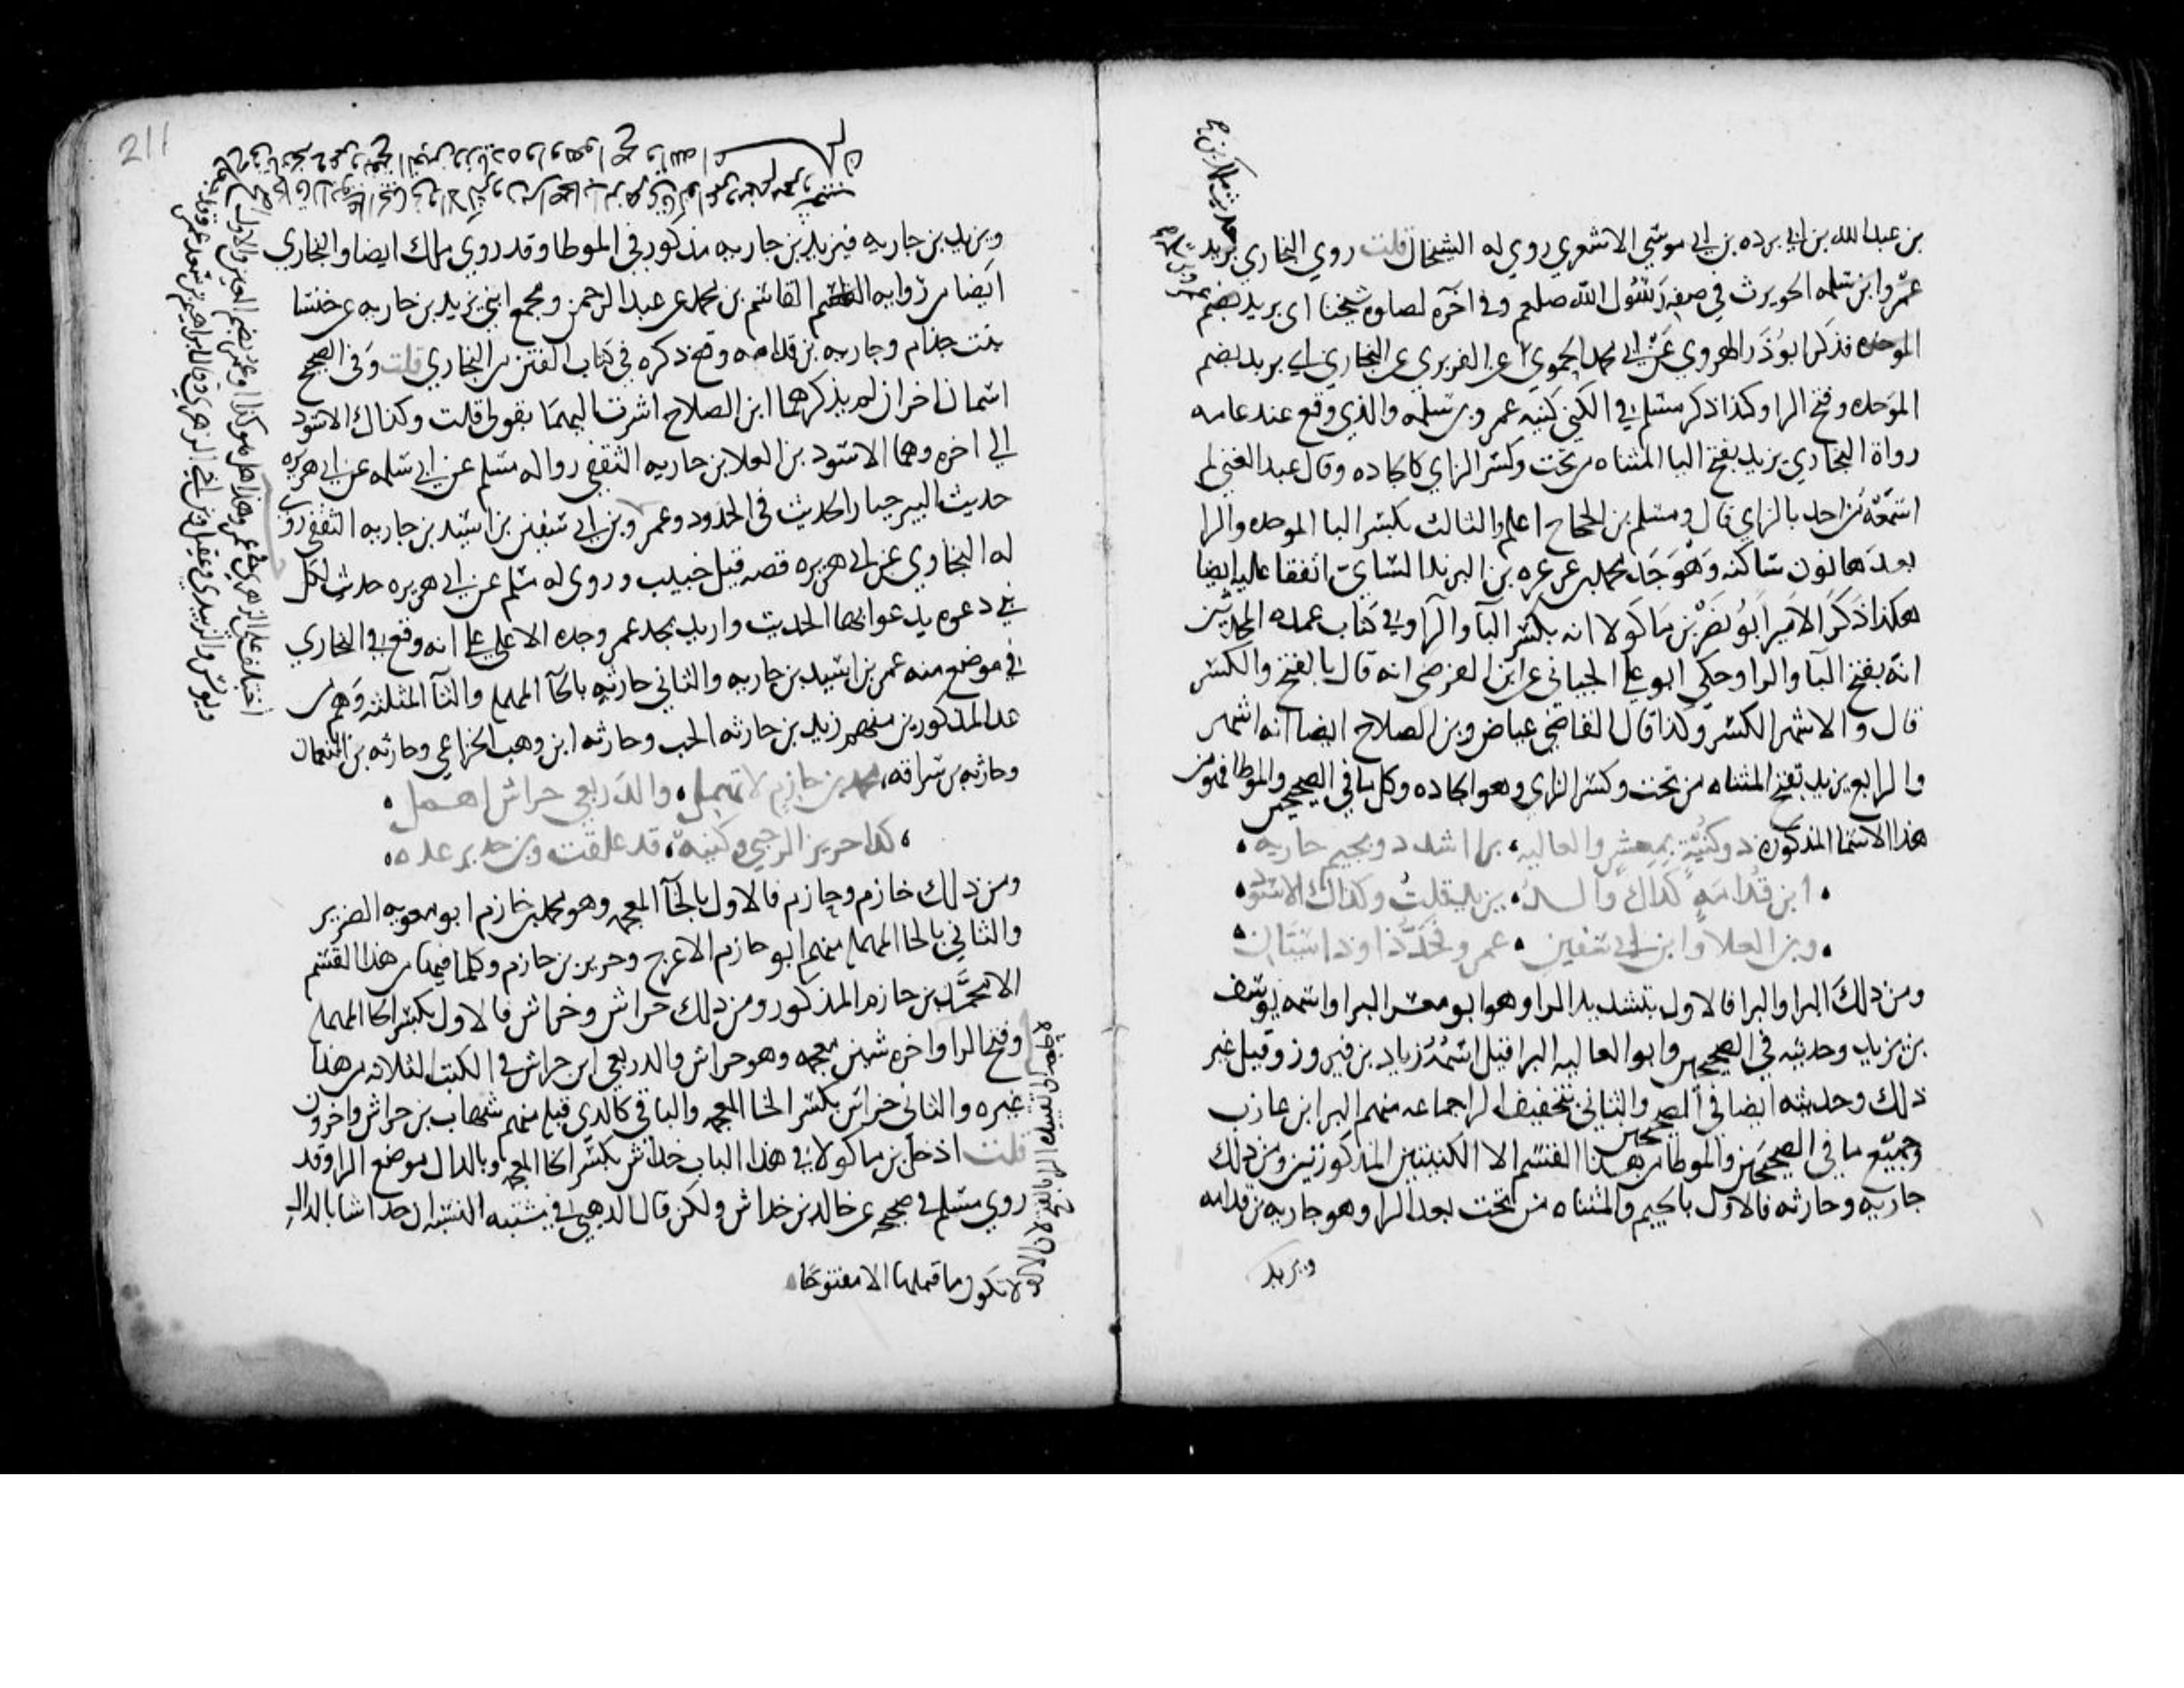 بن عبدالله بن ابي برده بن ابي موسي الاشعري روي له الشيخان قلت روي البخاري بريد
حديث ملك بن
عمرو ابن سلمه الحويرث في صفة رسول الله صلعم وفي آخره لصلوه شيخنا ابي بريد بضم
عمرو بن سلمه
الموحده فذكر ابو ذر الهروي عن ابي محمد الحموي عن الفربري عن البخاري ابي بريد بضم
الموحده وفتح الرا وكذا ذكر مسلم في الكني كنيه عمرو بن سلمه والذي وقع عند عامه
رواة البخاري يزيد بفتح اليا المثناه من تحت وكسر الزاي كالجاده وقال عبد الغني لم
اسمعه من احد بالزاي قال ومسلم بن الحجاج اعلم والثالث بكسر البا الموحده والرا
بعدها نون ساكنه وهو جد محمد بن عرعره بن البرند السامي اتفقا عليه ايضا
هكذا ذكر الامير ابو نصر بن ماكولا انه بكسر البا والرا وفي كتاب عمده المحدثين
انه بفتح البا والرا وحكي ابو علي الجياني عن ابن الفرضي انه قال بالفتح والكسر
قال والاشهر الكسر وكذا قال القاضي عياض وبن الصلاح ايضا انه اشهر
والرابع يزيد بفتح المثناه من تحت وكسر الزاي وهو الجاده وكل ما في الصحيحين والموطا فهو من
هذا الاسما المذكوره ذو كنية بمعشر والعاليه برا اشدد وبجيم جاريه
ابن قدامة كذاك والد يزيد قلت وكذاك الاسود
وبن العلا وابن ابي سفين عمرو فحد ذا وذا سيان
ومن ذلك البرا والبرا فالاول بتشديد الرا وهو ابو معشر البرا واسمه يوسف
بن يزيد وحديثه في الصحيحين وابو العاليه البرا قيل اسمه زياد بن فيروز وقيل غير
ذلك وحديثه ايضا في الصحيحين والثاني بتخفيف الرا جماعه منهم البرا ابن عازب
وجميع ما في الصحيحين والموطا من هذا القسم الا الكنيتين المذكورتين ومن ذلك
جاريه وحارثه فالاول بالجيم والمثناه من تحت بعد الرا وهو جاريه بن قدامه
ويزيد
211
ويزيد بن جاريه فيزيد بن جاريه مذكور في الموطا وقد روي ملك ايضا والبخاري
ايضا من روايه القاسم بن محمد عن عبد الرحمن ومجمع ابني يزيد بن جاريه عن خنسا
بنت خذام وجاريه بن قدامه وقع ذكره في كتاب الفتن من البخاري قلت وفي الصحيح
اسمان اخران لم يذكرهما ابن الصلاح اشرت اليهما بقولي قلت وكذاك الاسود
الي اخره وهما الاسود بن العلا بن جاريه الثقفي روا له مسلم عن ابي سلمه عن ابي هريره
حديث البير جبار الحديث في الحدود وعمرو بن ابي سفين بن اسيد بن جاريه الثقفي روي
له البخاري عن ابي هريره قصه قتل خبيب وروي له مسلم عن ابي هريره حديث لكل
نبي دعوه يدعو بها الحديث واريد بجد عمرو جده الاعلي علي انه وقع في البخاري
في موضع منه عمر بن اسيد بن جاريه والثاني حارثه بالحآ المهمله والثآ المثلثه وهم من
عدا المذكورين منهم زيد بن حارثه الحب وحارثه ابن وهب الخزاعي وحارثه بن النعمان
وحارثه بن سراقه، محمد بن خازم لا تهمل والد ربعي حراش اهمل
كذا حريز الرحبي وكنيه قد علقت وبن حدير عده
ومن ذلك خازم وحازم فالاول بالخآ المعجمه وهو محمد بن خازم ابو معويه الضرير
والثاني بالحا المهمله منهم ابو حازم الاعرج وجرير بن حازم وكلما فيها من هذا القسم
الا محمد بن خازم المذكور ومن ذلك حراش وخراش فالاول بكسر الحا المهمله
وفتح الرا واخره شين معجمه وهو حراش والد ربعي ابن حراش في الكتب الثلاثه من هذا
غيره والثاني خراش بكسر الخا المعجمه والباقي كالذي قبله منهم شهاب بن خراش واخرون
قلت ادخل بن ماكولا في هذا الباب خداش بكسر الخا المعجمه وبالدال موضع الرا وقد
روي مسلم في صحيحه عن خالد بن خداش ولكن قال الذهبي في مشتبه النسبه ان خداشا بالدال
لا تكون ما قبلها الا مفتوحا